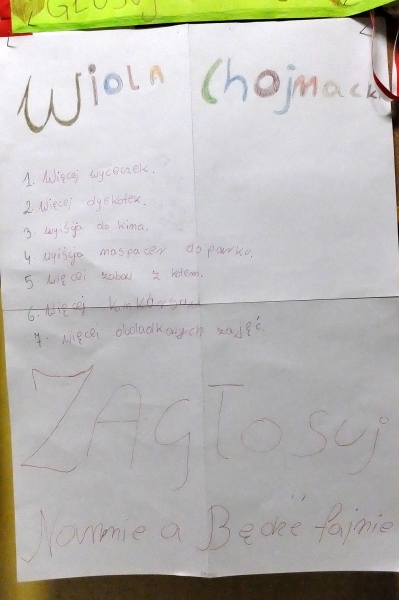 GŁOSUJ
Wiola Chojnacka
1. Więcej wycieczek.
2. Więcej dyskotek.
3 wyiścia do kina.
4 wyiścia naspacer do parku.
5 więcej zabaw z kołem.
6. Więcej konkórsów
7. więcej oboladkowych zajęć.
ZAGŁOSuj
Namnie a Będzie fajnie